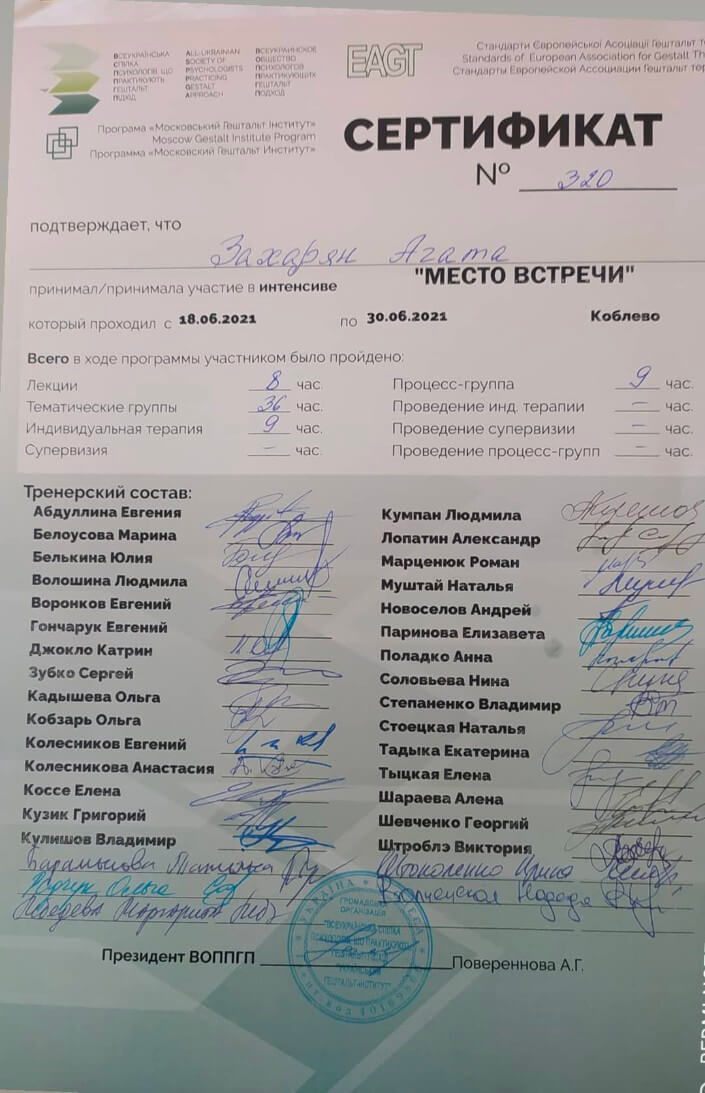 ВСЕУКРАЇНСЬКА СПІЛКА ПСИХОЛОГІВ, ЩО ПРАКТИКУЮТЬ ГЕШТАЛЬТ ПІДХІД
ALL-UKRAINIAN SOCIETY OF PSYCHOLOGISTS PRACTICING GESTALT APPROACH
ВСЕУКРАИНСКОЕ ОБЩЕСТВО ПСИХОЛОГОВ ПРАКТИКУЮЩИХ ГЕШТАЛЬТ ПОДХОД
EAGT
Стандарти Європейської Асоціації Гештальт те
Standards of European Association for Gestalt Th
Стандарты Европейской Ассоциации Гештальт тер
Програма «Московський Гештальт Інститут»
Moscow Gestalt Institute Program
Программа «Московский Гештальт Институт»
СЕРТИФИКАТ
№ 320
подтверждает, что
Захарян Агата
принимал/принимала участие в интенсиве "МЕСТО ВСТРЕЧИ"
который проходил с 18.06.2021 по 30.06.2021 Коблево
Всего в ходе программы участником было пройдено:
Лекции 8 час. Процесс-группа 9 час.
Тематические группы 36 час. Проведение инд. терапии – час.
Индивидуальная терапия 9 час. Проведение супервизии – час.
Супервизия – час. Проведение процесс-групп – час.
Тренерский состав:
Абдуллина Евгения Кумпан Людмила
Белоусова Марина Лопатин Александр
Белькина Юлия Марценюк Роман
Волошина Людмила Муштай Наталья
Воронков Евгений Новоселов Андрей
Гончарук Евгений Паринова Елизавета
Джокло Катрин Поладко Анна
Зубко Сергей Соловьева Нина
Кадышева Ольга Степаненко Владимир
Кобзарь Ольга Стоецкая Наталья
Колесников Евгений Тадыка Екатерина
Колесникова Анастасия Тыцкая Елена
Коссе Елена Шараева Алена
Кузик Григорий Шевченко Георгий
Кулишов Владимир Штроблэ Виктория
Татьяна Ирина
Ольга
Лебедева Маргарита
УКРАЇНА ОДЕСА
ГРОМАДСЬКА ОРГАНІЗАЦІЯ
"ВСЕУКРАЇНСЬКА СПІЛКА
ПСИХОЛОГІВ, ЩО ПРАКТИКУЮТЬ
ГЕШТАЛЬТ-ПІДХІД
ГЕШТАЛЬТ-ІНСТИТУТ"
Президент ВОППГП Повереннова А.Г.